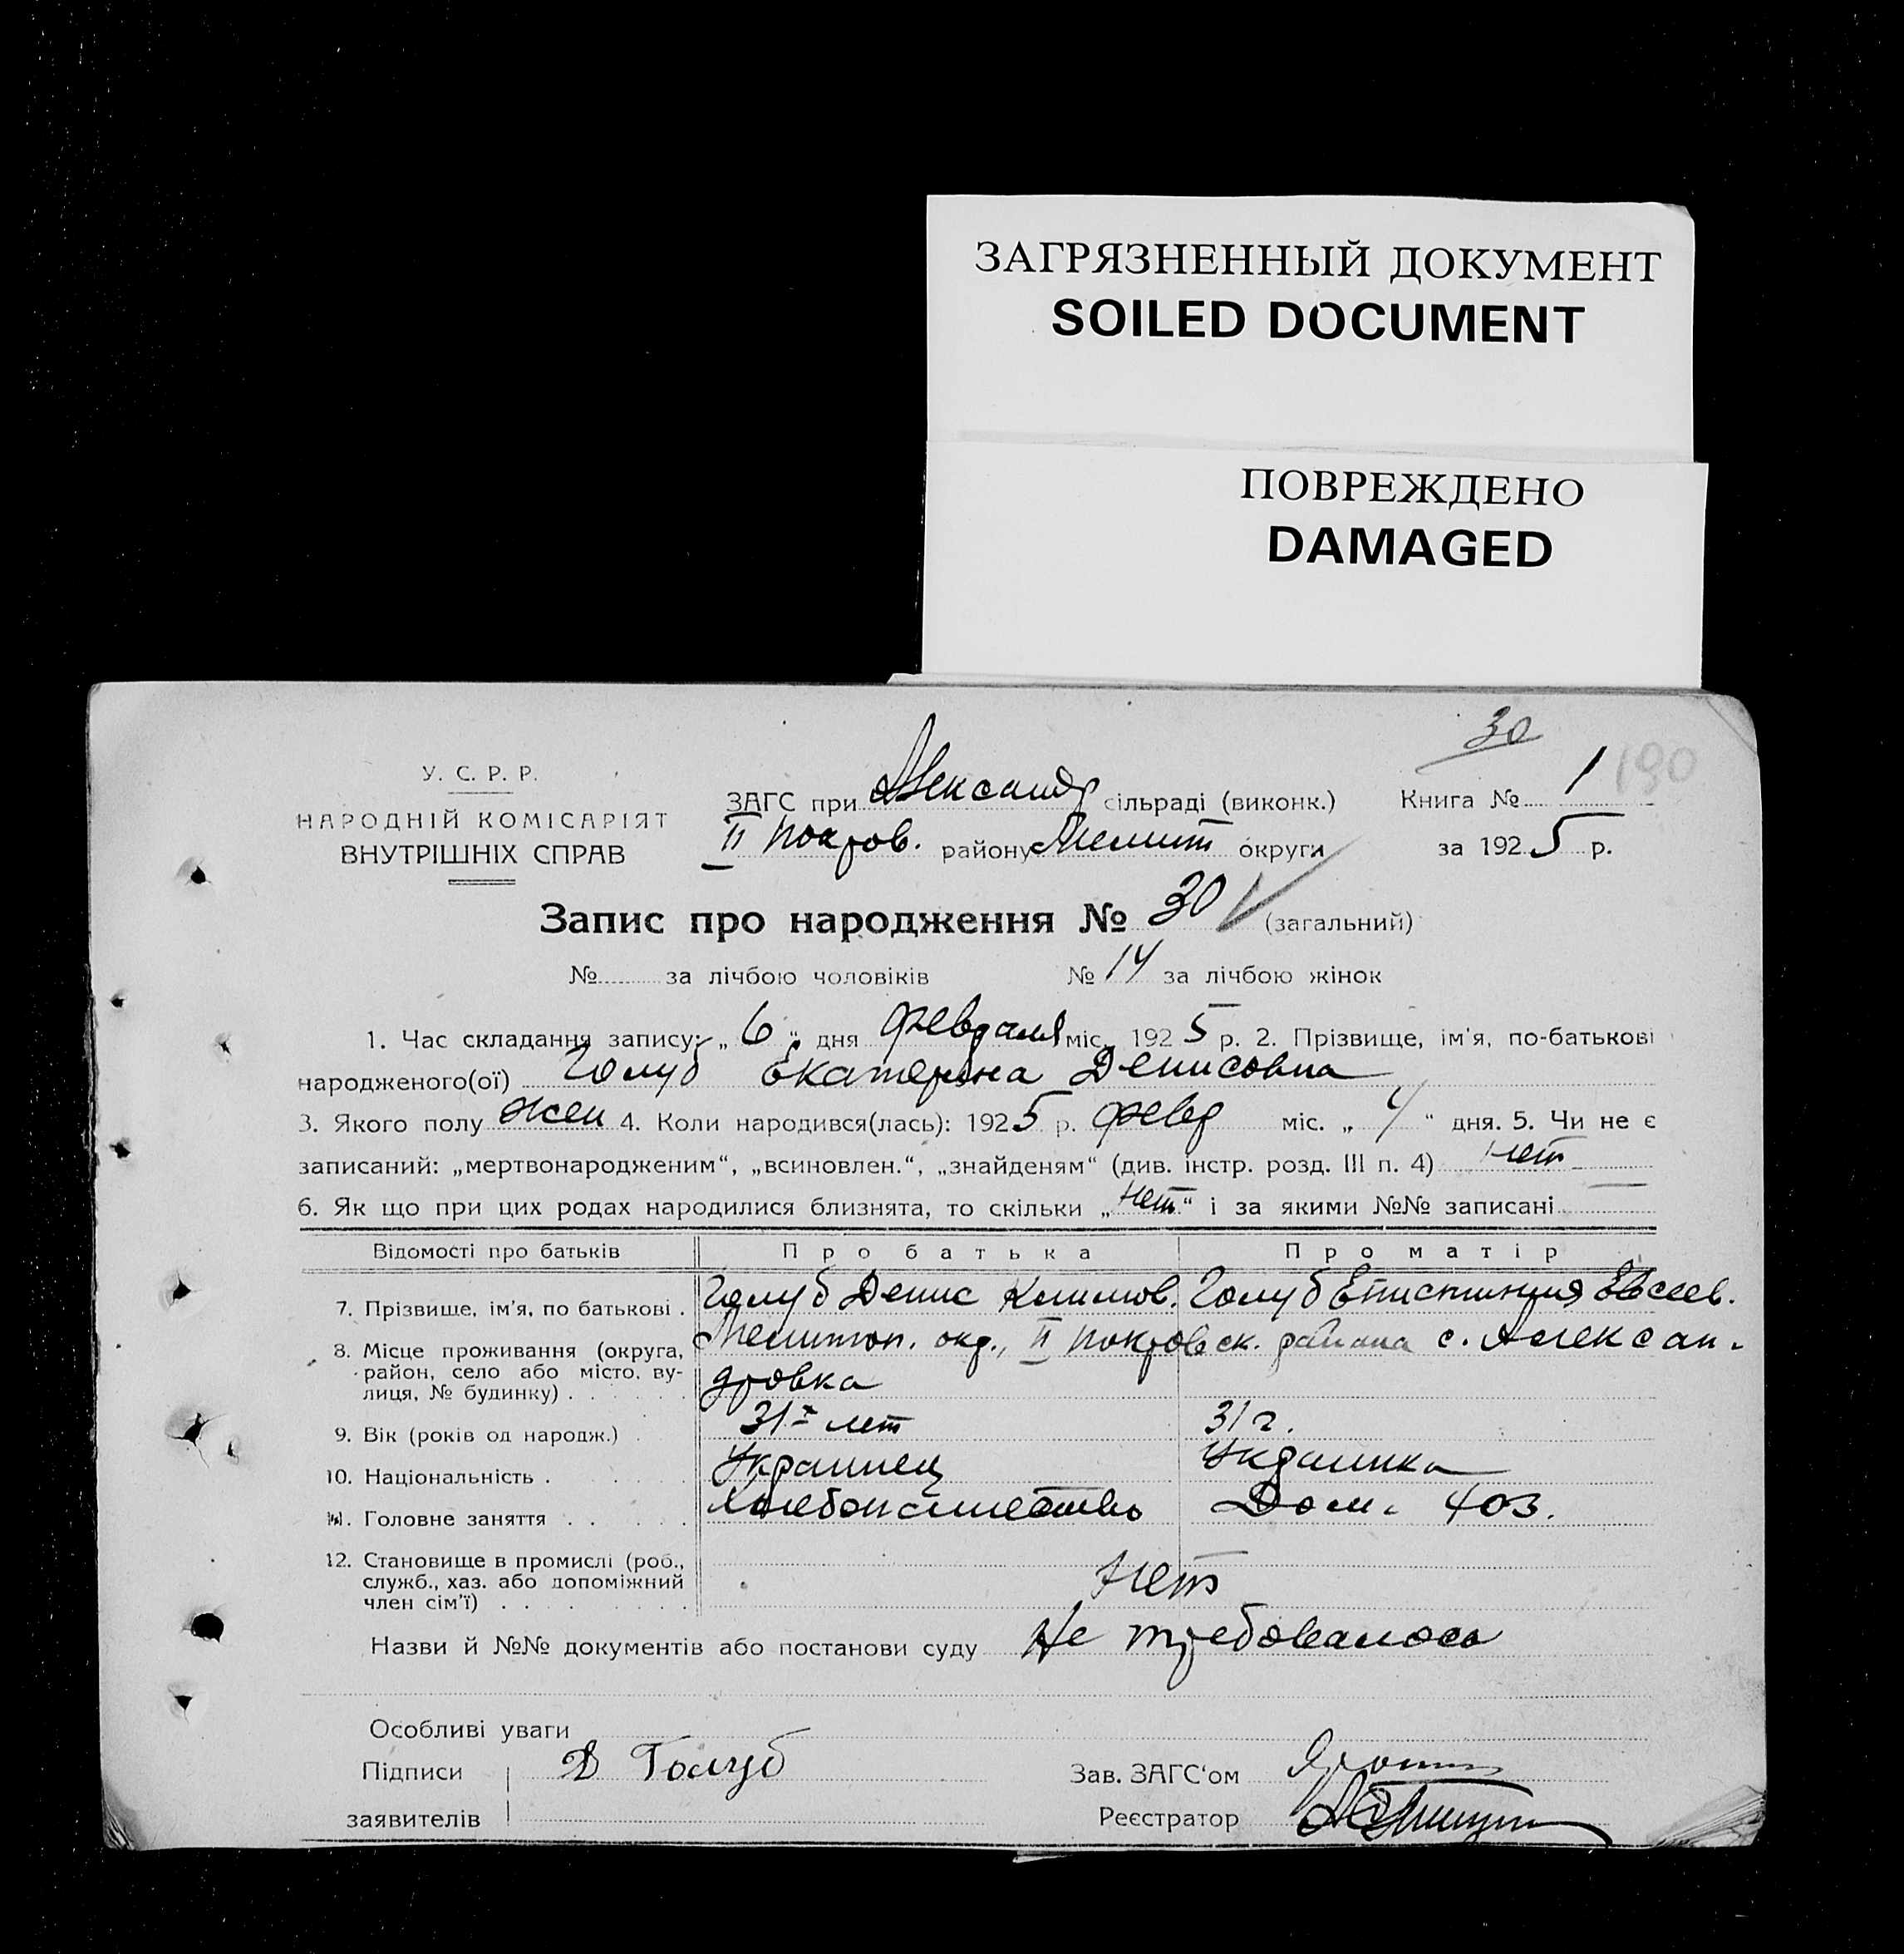 ЗАГРЯЗНЕННЫЙ ДОКУМЕНТ
SOILED DOCUMENT
ПОВРЕЖДЕНО
DAMAGED
30
190
У. С. Р. Р.
НАРОДНІЙ КОМІСАРІЯТ
ВНУТРІШНІХ СПРАВ
ЗАГС при Александр сільраді (виконк.) Книга № 1
II Покров. району Мелит округи за 1925 р.
Запис про народження № 30 (загальний)
№ за лічбою чоловіків № 14 за лічбою жінок
1. Час складання запису: „ 6 “ дня февраля міс. 1925 р. 2. Прізвище, ім'я, по-батькові
народженого(ої) Голуб Екатерина Денисовна
3. Якого полу жен 4. Коли народився(лась): 1925 р. февр міс. „ 4 “ дня. 5. Чи не є
записаний: „мертвонародженим“, „всиновлен.“, „знайденям“ (див. інстр. розд. III п. 4) нет
6. Як що при цих родах народилися близнята, то скільки „ нет “ і за якими №№ записані
Відомості про батьків Про батька Про матір
7. Прізвище, ім'я, по батькові . Голуб Денис Климов. Голуб Епистиния Евсеев.
8. Місце проживання (округа, район, село або місто, вулиця, № будинку) . Мелитоп. окр., II Покровск. района с. Алексан-
дровка
9. Вік (років од народж.) . 31 лет 31 г.
10. Національність . Украинец Украинка
11. Головне заняття . Хлебопашество Дом. хоз.
12. Становище в промислі (роб., служб., хаз. або допоміжний член сім'ї) . Нет
Назви й №№ документів або постанови суду Не требовалось
Особливі уваги
Підписи Д Голуб Зав. ЗАГС'ом
заявителів Реєстратор